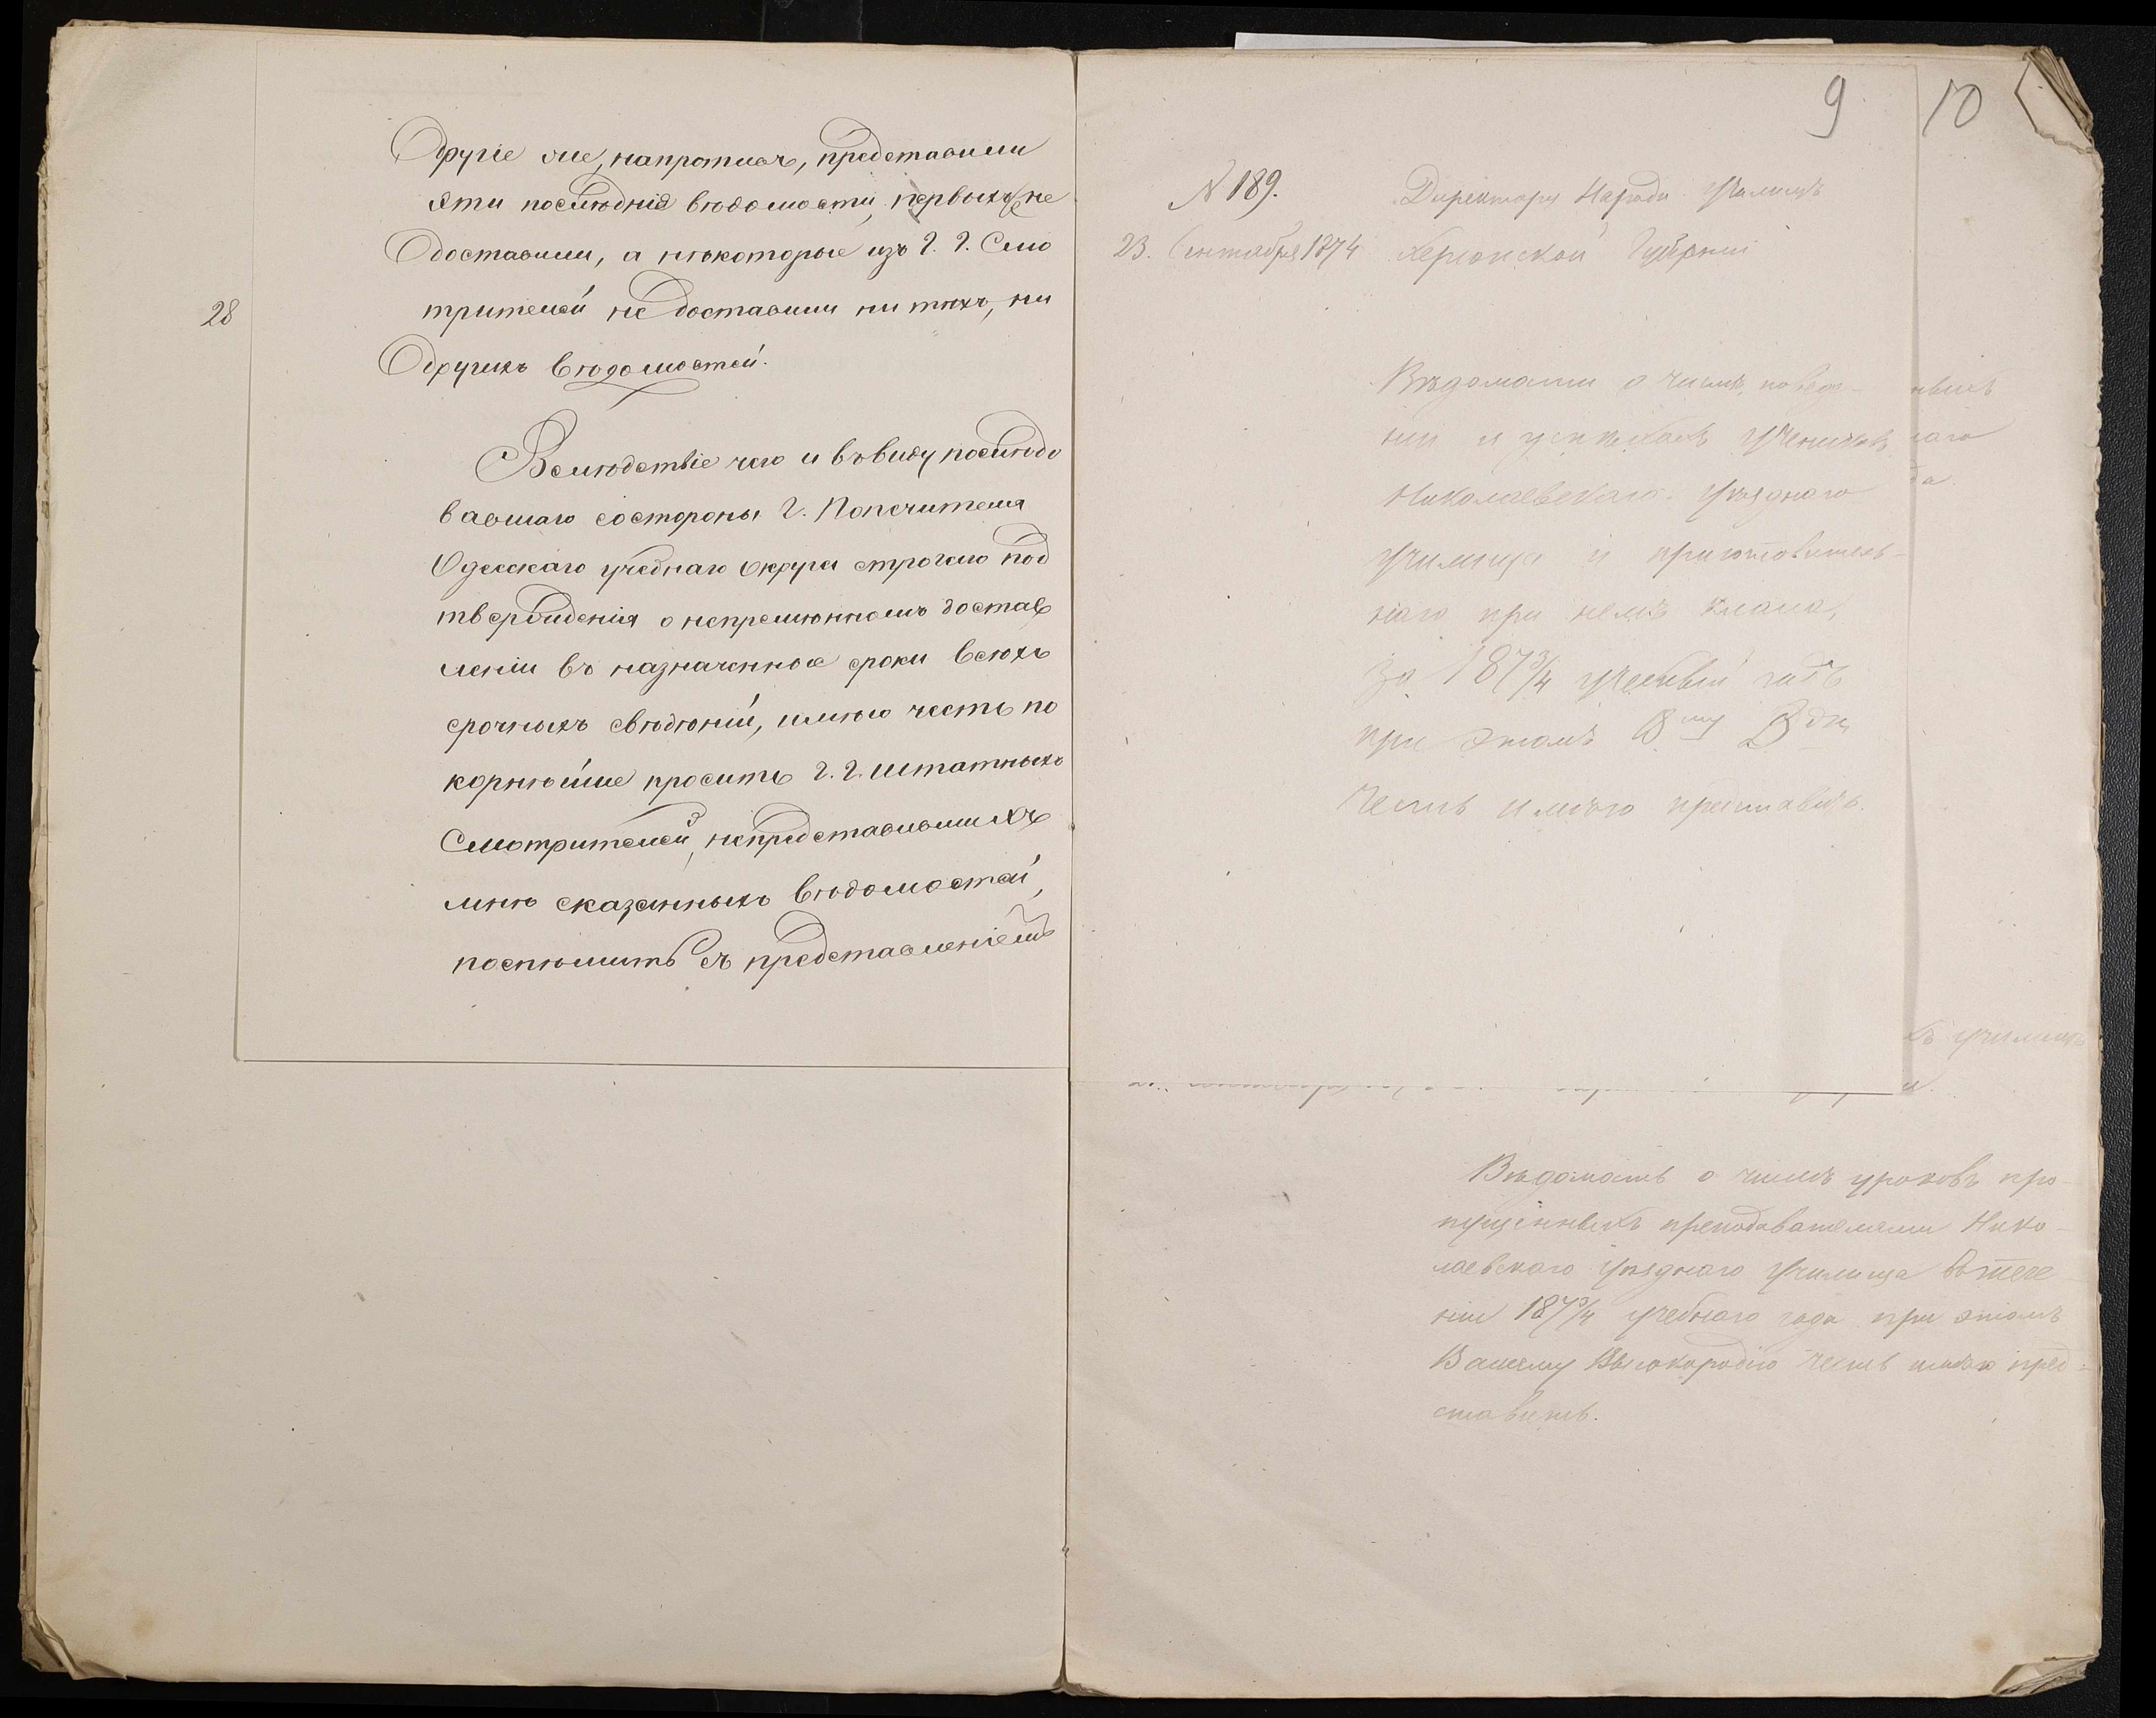 28
Другіе же, напротивъ, представили
эти послѣднія вѣдомости, первыхъ не
доставили, а нѣкоторые изъ Г. Г. Смо
трителей не доставили ни тѣхъ, ни
другихъ вѣдомостей.
Вслѣдствіе чего и въ виду послѣдо
вавшаго со стороны Г. Попечителя
Одесскаго учебнаго округа строгаго под
твержденія о непремѣнномъ достав
леніи въ назначенное сроки всѣхъ
срочныхъ свѣдѣній, имѣю честь по
корнѣйше просить Г. Г. Штатныхъ
Смотрителей, непредставившихъ
мнѣ сказанныхъ вѣдомостей,
поспѣшить съ представленіемъ
9
10
№ 189.
23. Сентября 1874
Директору Народн Училищъ
Херсонской Губерніи
Вѣдомости о числѣ, поведе-
ніи и успѣхахъ учениковъ
Николаевскаго Уѣзднаго
Училища и приготовитель-
наго при немъ класса,
за 187¾ учебный годъ
при этомъ В.му В.дію
честь имѣю представить.
ныхъ
наго
да
училищѣ
Вѣдомость о числѣ уроковъ про-
пущенныхъ преподавателями Нико-
лаевскаго Уѣзднаго Училища въ тече
ніи 187¾ учебнаго года при этомъ
Вашему Высокородію честь имѣю пред-
ставить.